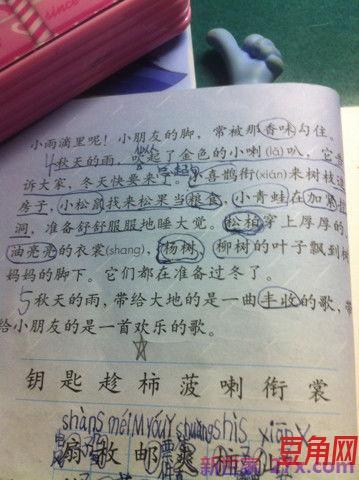 since
小雨滴里呢！小朋友的脚，常被那香味勾住。
4秋天的雨，吹起了金色的小喇(lǎ)叭，它告
诉大家，冬天快要来了。小喜鹊衔(xián)来树枝造
房子，小松鼠找来松果当粮食，小青蛙在加紧挖
洞，准备舒舒服服地睡大觉。松柏穿上厚厚的
油亮亮的衣裳(shang)，杨树、柳树的叶子飘到树
妈妈的脚下。它们都在准备过冬了。
5秋天的雨，带给大地的是一曲丰收的歌，带
给小朋友的是一首欢乐的歌。
钥匙趁柿菠喇衔裳
扇枚邮
豆角网